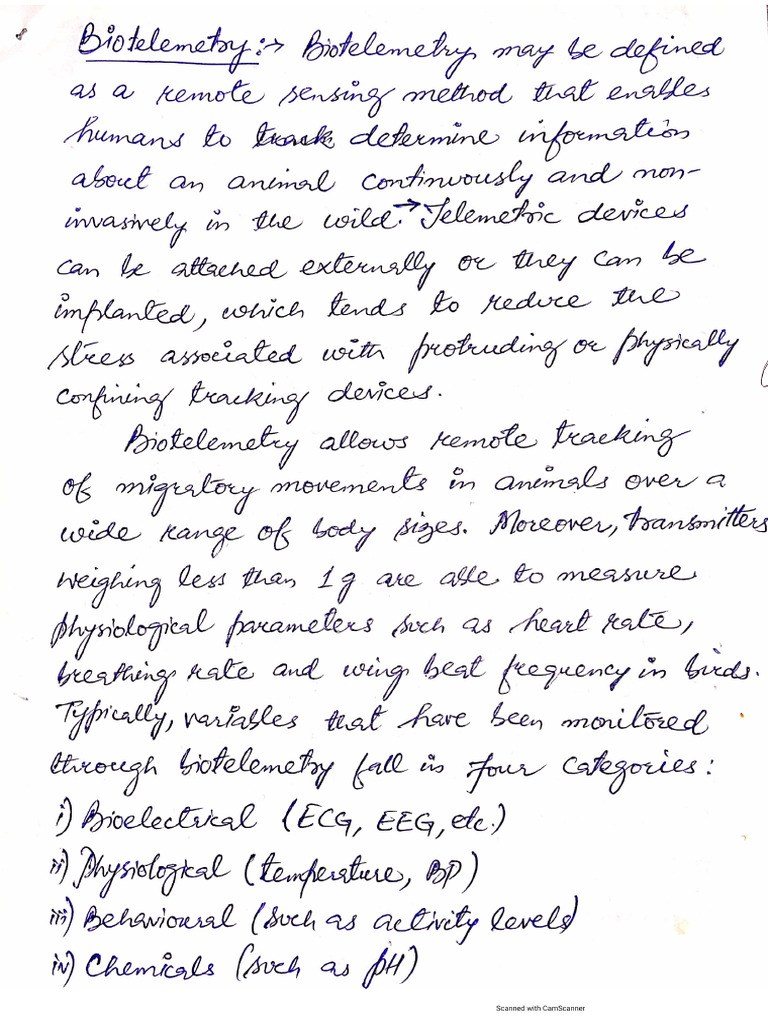 Biotelemetry :→ Biotelemetry may be defined
as a remote sensing method that enables
humans to track determine information
about an animal continuously and non-
invasively in the wild. → Telemetric devices
can be attached externally or they can be
implanted, which tends to reduce the
stress associated with protruding or physically
confining tracking devices.
Biotelemetry allows remote tracking
of migratory movements in animals over a
wide range of body sizes. Moreover, transmitters
weighing less than 1g are able to measure
physiological parameters such as heart rate,
breathing rate and wing beat frequency in birds.
Typically, variables that have been monitored
through biotelemetry fall in four categories:
i) Bioelectrical (ECG, EEG, etc.)
ii) Physiological (temperature, BP)
iii) Behavioural (such as activity levels)
iv) Chemicals (such as pH)
Scanned with CamScanner